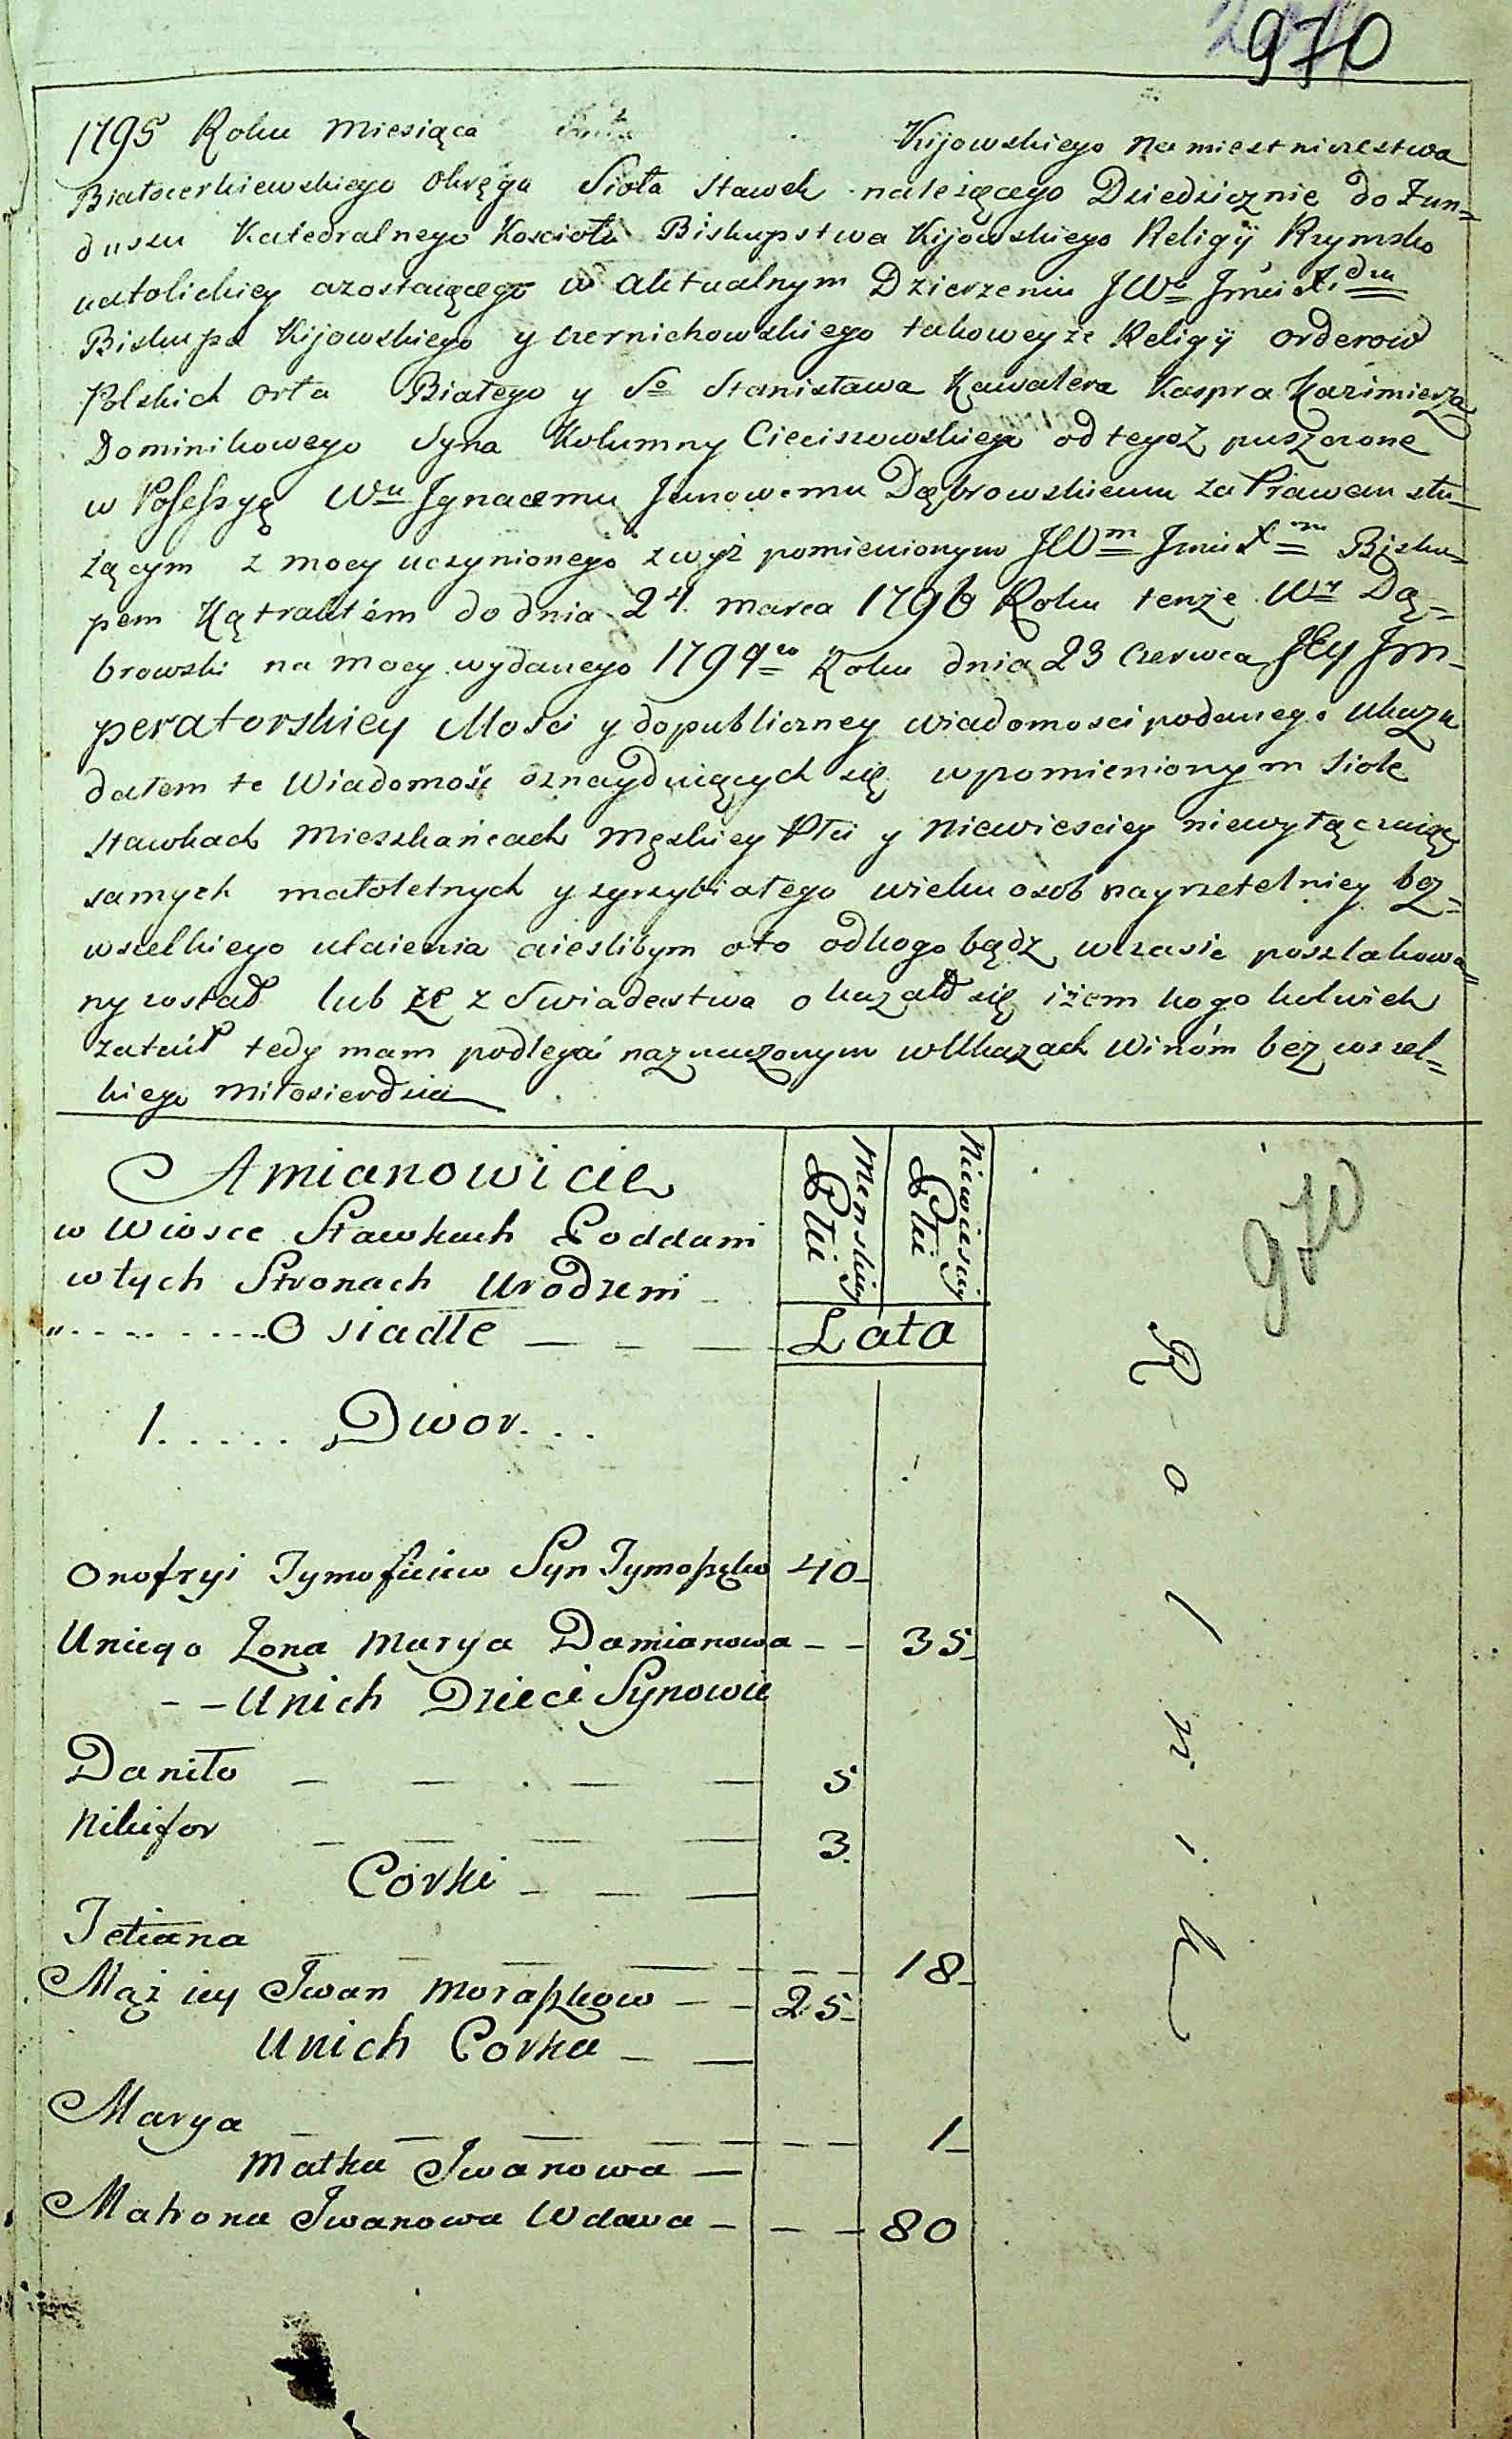 970
1795 Roku Miesiąca Kijowskiego Namiestniczestwa
Białocerkiewskiego Okręgu Sioła Stawek należącego Dziedzicznie do Fun=
duszu Katedralnego Kościoła Biskupstwa Kijowskiego Religÿ Rzymsko
katolickiey azostaiącego w Aktualnym Dzierżeniu JWo Jmći X.dza
Biskupa Kijowskiego y czernichowskiego takoweyże Religÿ orderow
Polskich orła Białego y So Stanisława Kawalera Kaspra Kazimierza
Dominikowego Syna Kolumny Cieciszowskiego od tegoż puszczone
w Possessyą Wu Jgnacemu Janowemu Dąbrowskiemu za Prawem słu=
żącym z mocy uczynionego zwyż pomienionym JWm Jmći Xm Bisku=
pem Kątraktem do dnia 24 marca 1796 Roku tenże Wy Dą=
browski na mocy wydanego 1794go Roku dnia 23 Czerwca Jey Jm=
peratorskiey Mości y dopubliczney wiadomosci podanego Ukazu
dałem te Wiadomość oznayduiących się wpomienionym Siole
Stawkach Mieszkańcach Męzkiey Płci y Niewiesciey niewyłączaiąc
samych małoletnych y zgrzybiałego wieku osob nayrzetelniey bez=
wszelkiego utaienia aieslibym oto odkogo bądz wczasie poszlakowa=
ny został lub że z Swiadectwa okazałd się iżem kogo kolwiek
zataił tedy mam podlegać naznaczonym wUkazach Winóm bez wszel=
kiego miłosierdzia
Amianowicie
w Wiosce Stawkach Poddani
wtych Stronach Urodzeni
„ . . . . . . . . . Osiadłe
Menskiey Płci
Niewiesciey Płci
Lata
970
1 . . . . . Dwor . . .
Onofryi Tymofieiew Syn Tymoszęko 40
Uniego Żona Marya Damianowa 35
Unich Dzieci Synowie
Daniło 5
Nikifor 3
Corki
Tetiana 18
Mąż iey Jwan Moraszkow 25
Unich Corka
Marya 1
Matka Jwanowa
Matrona Jwanowa Wdowa 80
R o l n i k